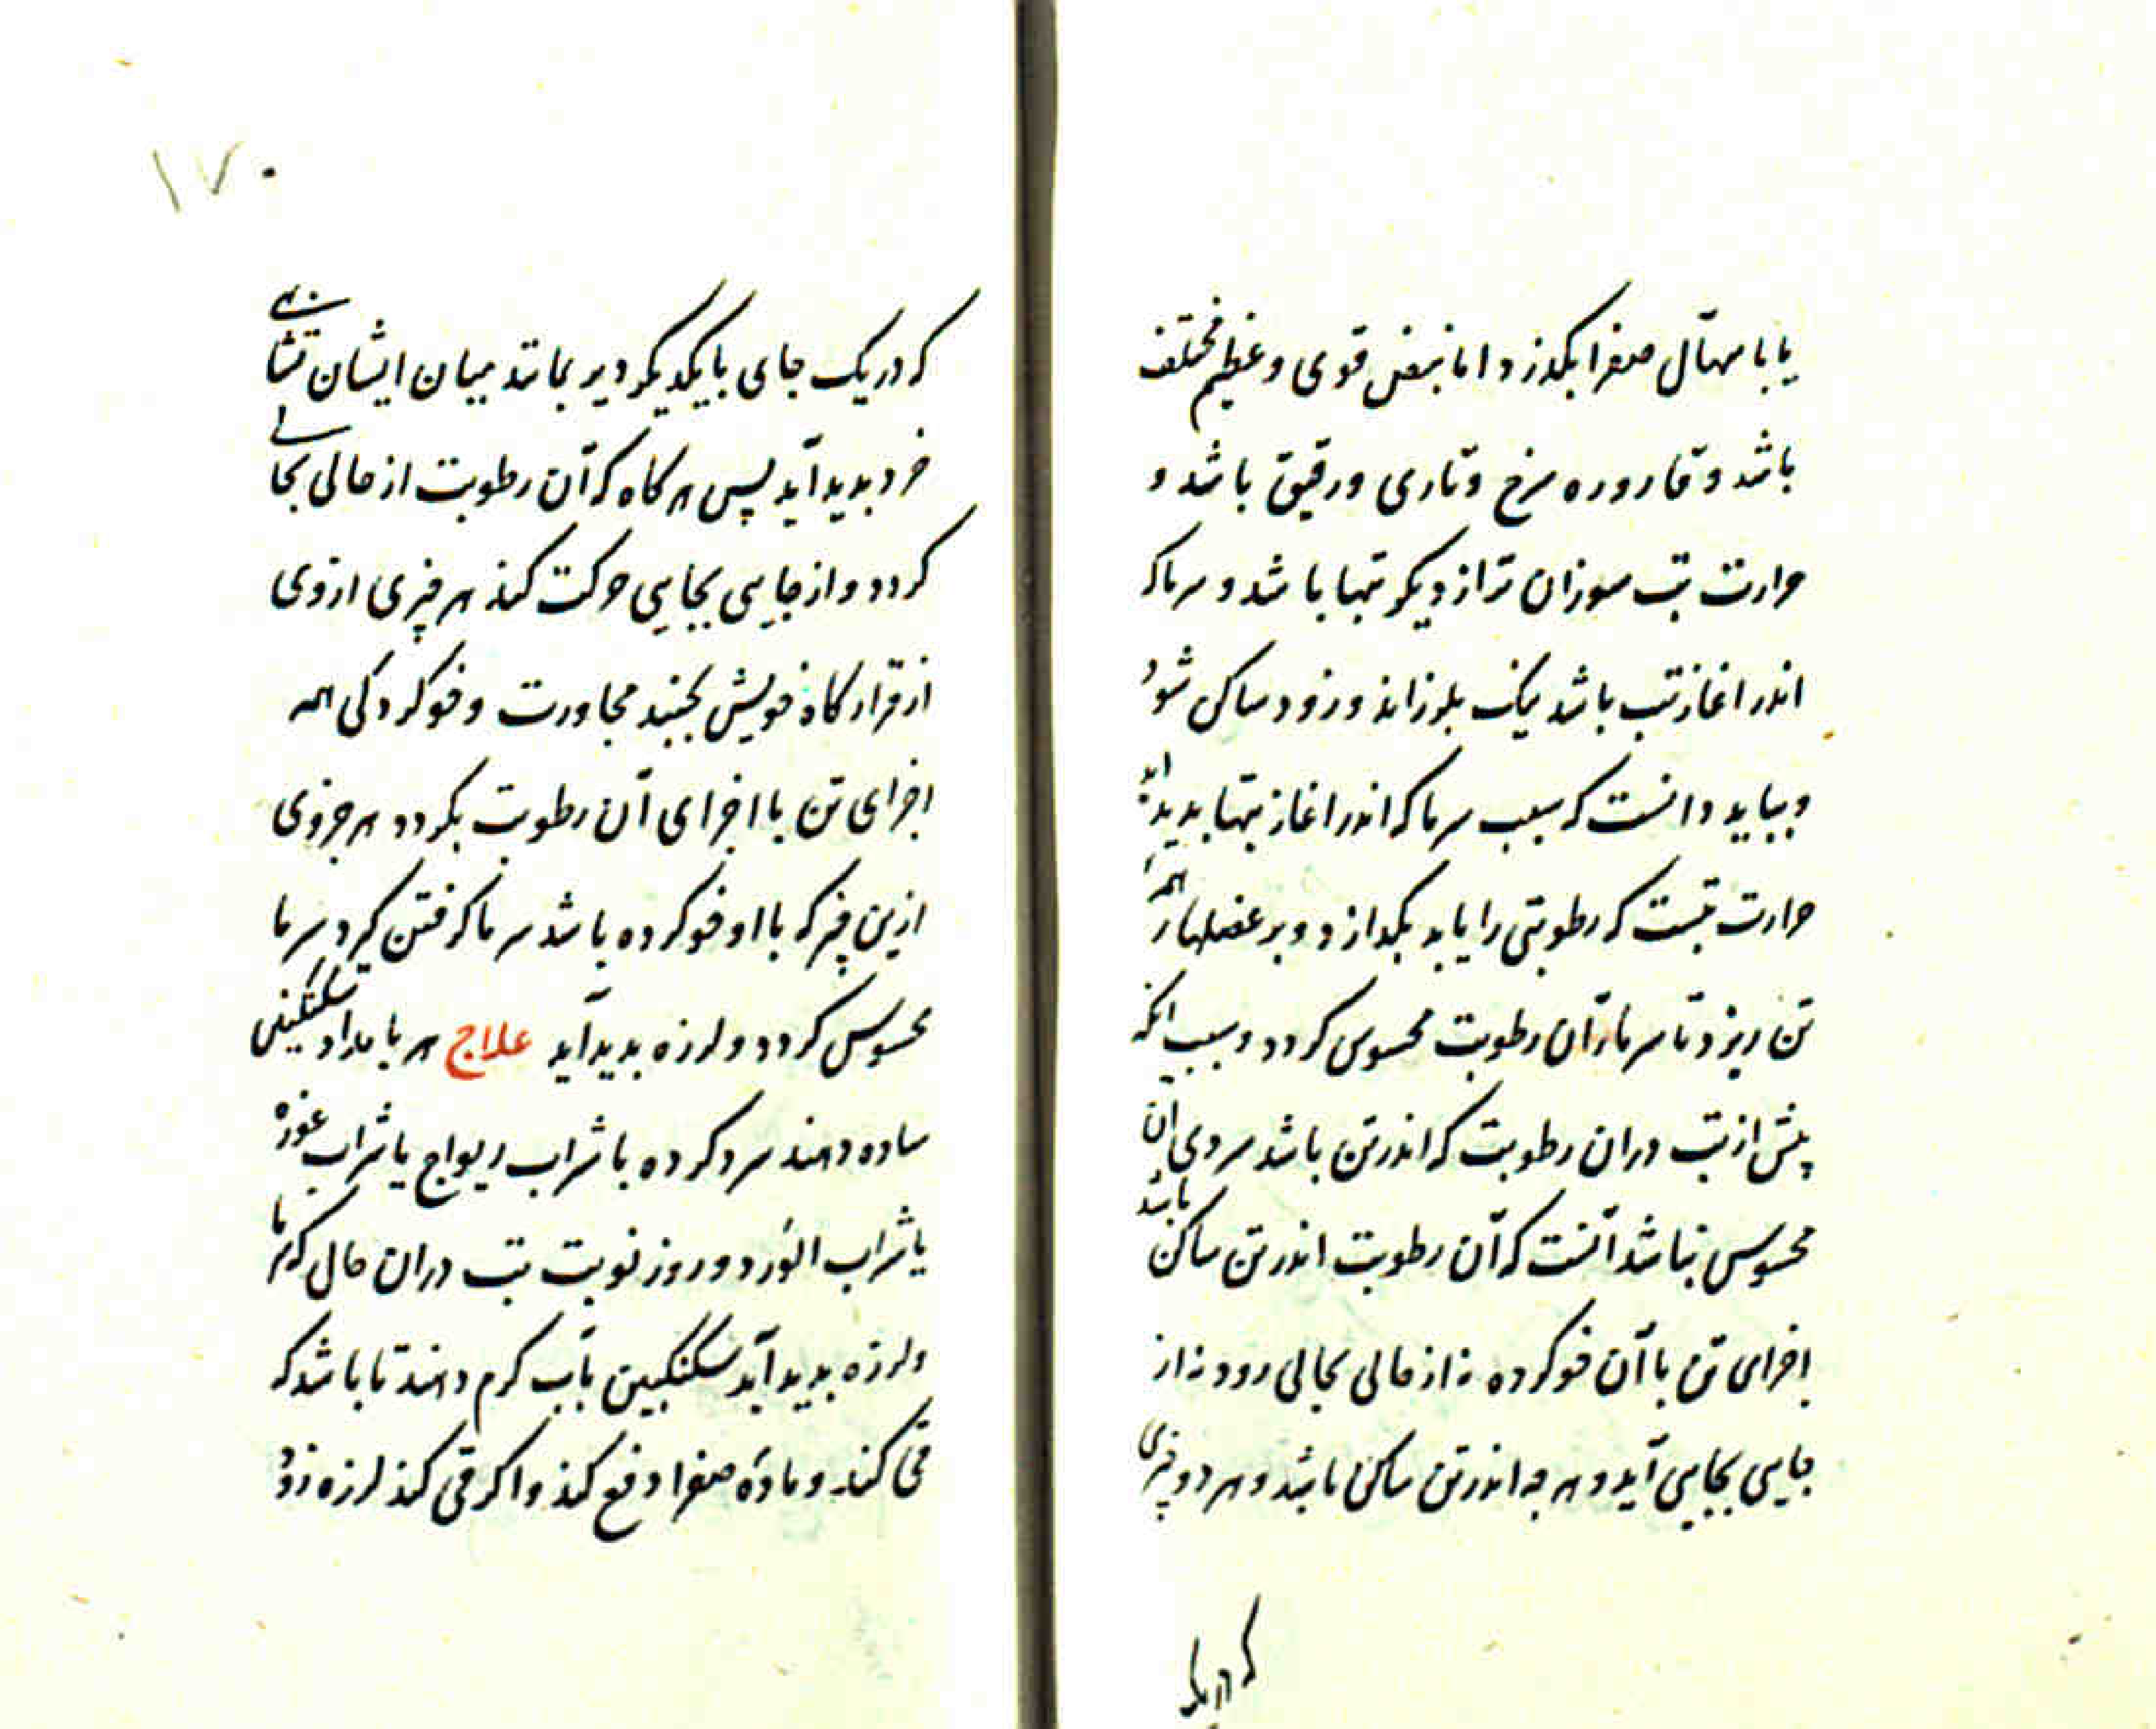 یا باسهال صفرا بکدزد اما نبض قوی و عظیم مختلف
باشد و قاروره سرخ و ناری و رقیق باشد و
حرارت تب سوزان تر از دیکر تبها باشد و سرما که
اندر اغاز تب باشد نیک بلرزاند و زود ساکن شود
و بباید دانست که سبب سرما که اندر اغاز تبها بدید اید
حرارت تبست که رطوبتی را یابد بکدازد و بر عضلهاء همه
تن ریزد تا سرماء آن رطوبت محسوس کردد و سبب انکه
پیش از تب دران رطوبت که اندر تن باشد سردی ان
محسوس نباشد آنست که آن رطوبت اندر تن ساکن باشد
اجزای تن با آن خو کرده نه از حالی بحالی رود نه از
جایی بجایی آید و هر چه اندر تن ساکن باشد و هر دو چیزی
که در یک
۱۷۰
که در یک جای با یکدیکر دیر بماند میان ایشان تشابهی
خرد بدید آید پس هر کاه که آن رطوبت از حالی بحالی
کردد و از جایی بجایی حرکت کند هر چیزی از وی
از قرار کاه خویش بجنبد مجاورت و خو کردکی همه
اجزای تن با اجزای آن رطوبت بکردد هر جزوی
ازین چیز که با او خو کرده باشد سرما کرفتن کیرد سرما
محسوس کردد و لرزه بدید آید علاج هر بامداد سکنکبین
ساده دهند سرد کرده با شراب ریواج یا شراب غوره
یا شراب الوزد و روز نوبت تب دران حال که سرما
و لرزه بدید آید سکنکبین بآب کرم دهند تا باشد که
قی کند و مادۀ صفرا دفع کند و اکر قی کند لرزه زود